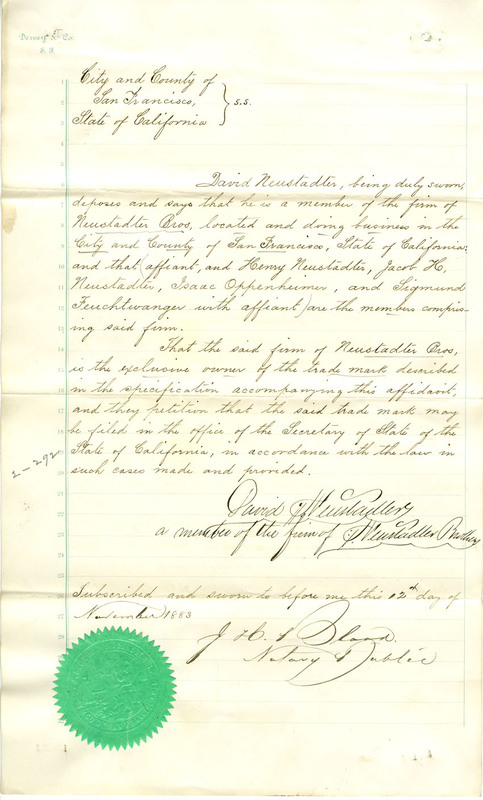 Dewey & Co.
S. F.
City and County of
San Francisco,
State of California
} S.S.
David Neustadter, being duly sworn,
deposes and says that he is a member of the firm of
Neustadter Bros, located and doing business in the
City and County of San Francisco, State of California;
and that (affiant, and Henry Neustadter, Jacob H.
Neustadter, Isaac Oppenheimer, and Sigmund
Feuchtwanger with affiant) are the members compris-
ing said firm.
That the said firm of Neustadter Bros,
is the exclusive owner of the trade mark described
in the specification accompanying this affidavit,
and they petition that the said trade mark may
be filed in the office of the Secretary of State of the
State of California, in accordance with the law in
such cases made and provided.
David Neustadter
a member of the firm of Neustadter Brothers
Subscribed and sworn to before me this 12th day of
November 1883
Notary Public
1
2
3
4
5
6
7
8
9
10
11
12
13
14
15
16
17
18
19
20
21
22
23
24
25
26
27
28